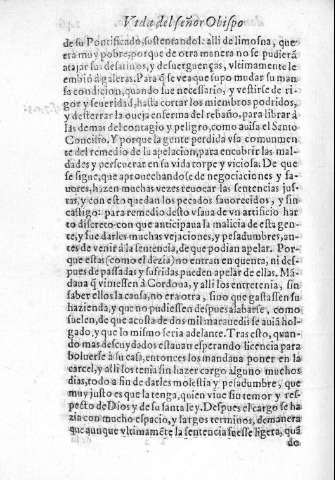 Vida del señor Obispo
de su Pontificado, sustentandole alli de limosna, que
era muy pobre, porque de otra manera no se pudierã
atajar sus desatinos, y desuerguenças, vltimamente le
embiò a galeras. Para q̃ se vea que supo mudar su man
sa condicion, quando fue necessario, y vestirse de ri-
gor y seueridad, hasta cortar los miembros podridos,
y desterrar la oueja enferma del rebaño, para librar à
las demas del contagio y peligro, como auisa el Santo
Concilio. Y porque la gente perdida vsa comunmen-
te del remedio de la apelacion, para encubrir las mal-
dades y perseuerar en su vida torpe y viciosa. De que
se sigue, que aprouechandose de negociaciones y fa-
uores, hazen muchas vezes reuocar las sentencias jus-
tas, y con esto quedan los pecados fauorecidos, y sin
castigo: para remedio desto vsaua de vn artificio har
to discreto con que anticipaua la malicia de esta gen-
te, y fue darles muchas vejaciones, y pesadumbres, an-
tes de venir à la sentencia, de que podian apelar. Por-
que estas (como el dezia) no entran en quenta, ni des-
pues de passadas y sufridas pueden apelar de ellas. Mã-
daua q̃ viniessen à Cordoua, y alli los entretenia, sin
saber ellos la causa, no era otra, sino que gastassen su
hazienda, y que no pudiessen despues alabarse, como
suelen, de que a costa de dos mil marauedis se auiã hol-
gado, y que lo mismo seria adelante. Tras esto, quan-
do mas descuydados estauan esperando licencia para
boluerse à su casa, entonces los mandaua poner en la
carcel, y alli los tenia sin hazer cargo alguno muchos
dias, todo a fin de darles molestia y pesadumbre, que
muy justo es que la tenga, quien viue sin temor y res-
pecto de Dios y de su santa ley. Despues el cargo se ha
zia con mucho espacio, y largos terminos, de manera
que aunque vltimamẽte la sentencia fuesse ligera, quã
do